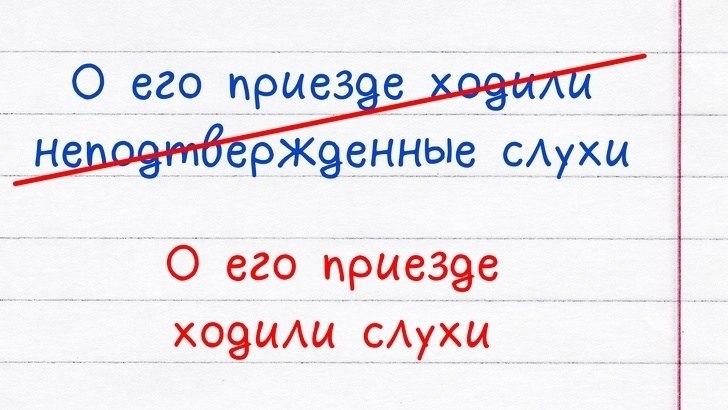 О его приезде ходили
неподтвержденные слухи
О его приезде
ходили слухи